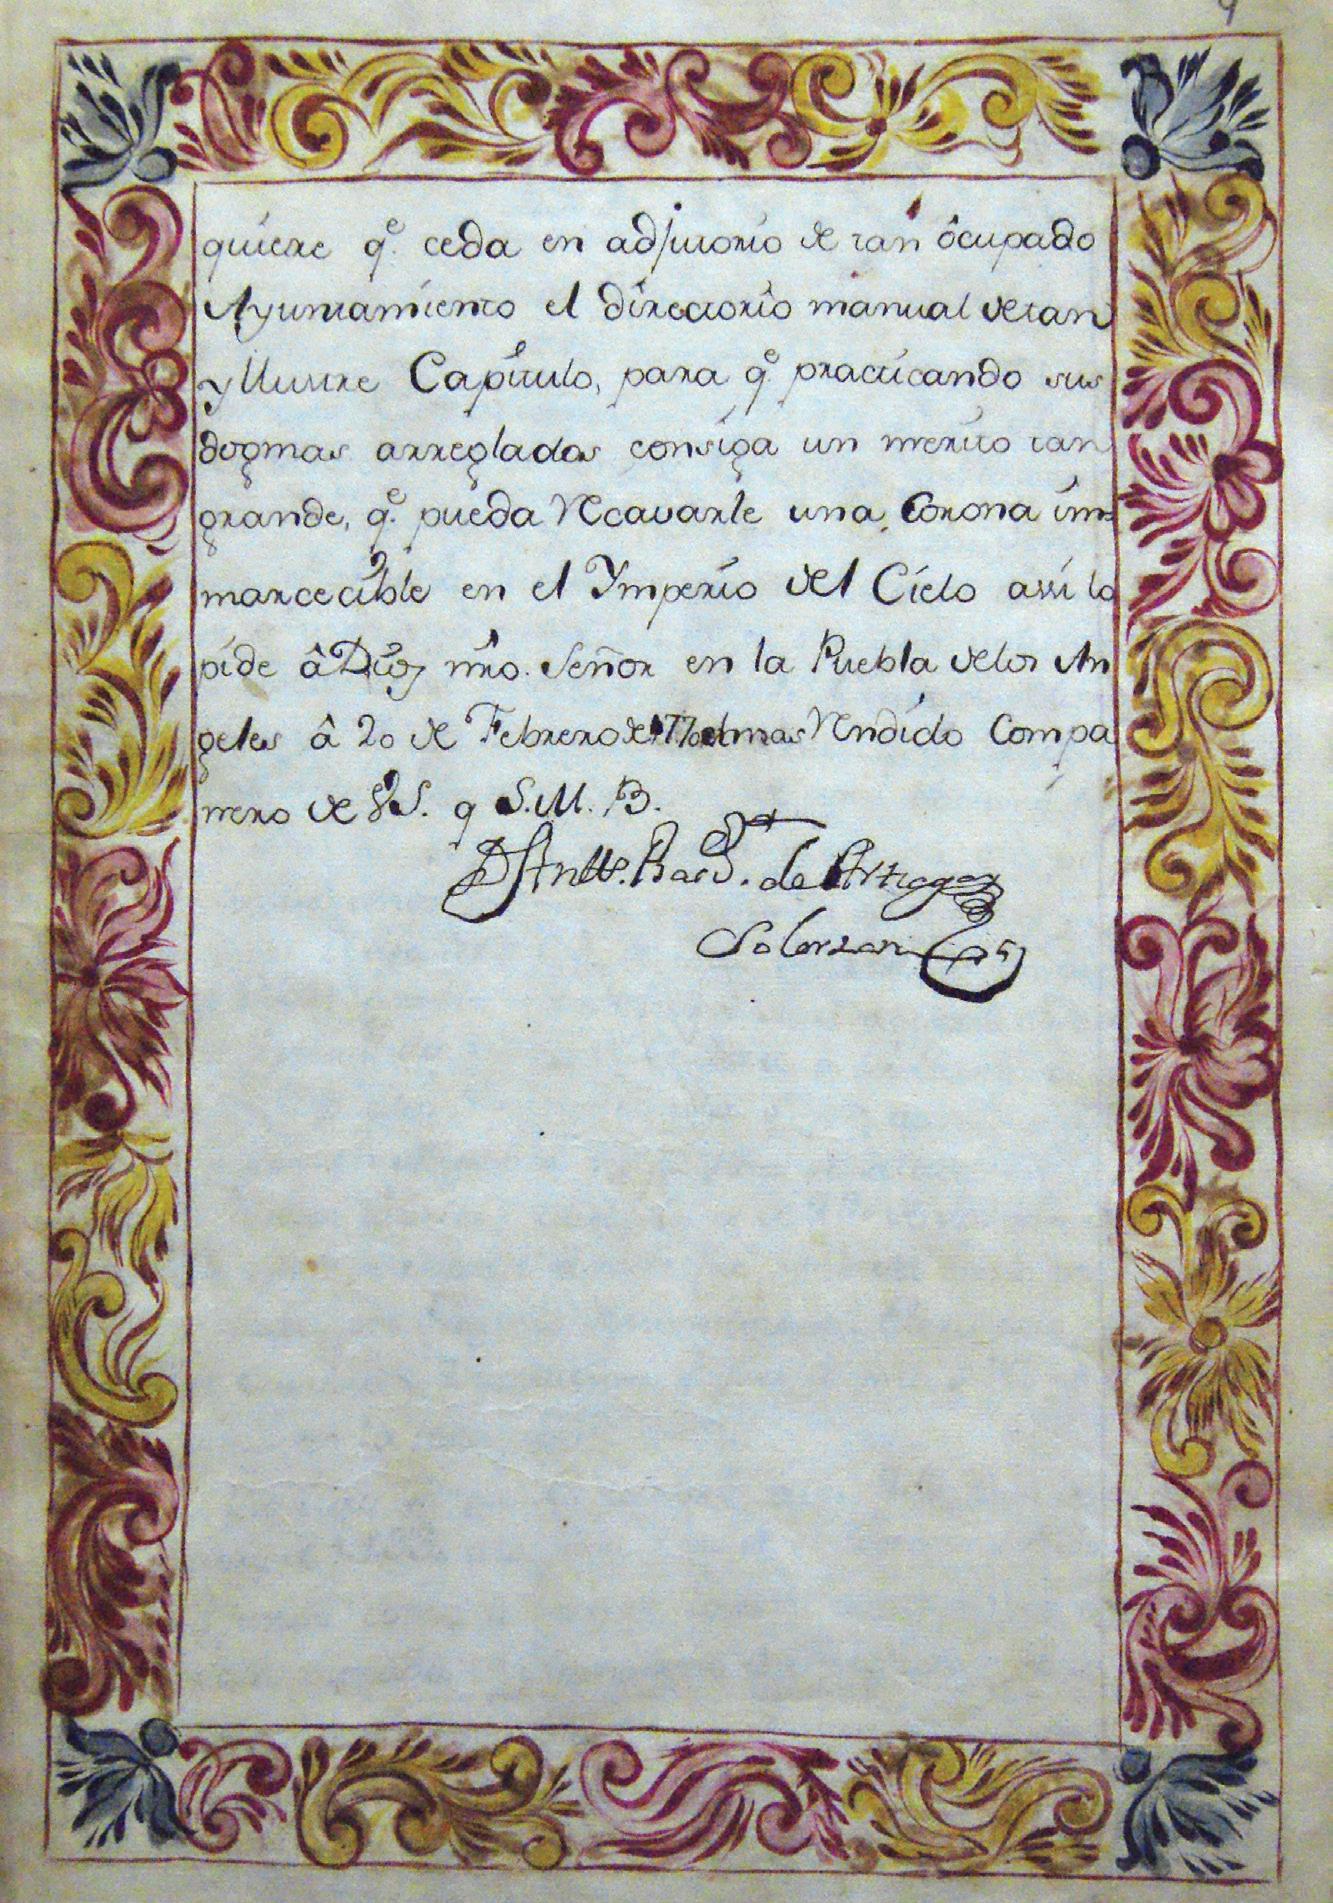 9
quiere q.e ceda en adjutorio de tan ôcupado
Ayuntamiento el directorio manual de tan
yllustre Capitulo, para q.e practicando sus
dogmas arreglados consiga un merito tan
grande, q.e pueda Recavarle una Corona im=
marcecible en el Ymperio del Cielo assi lo
pide â Dios nro. Señor en la Puebla de los An
geles â 20 de Febrero de 1770 el mas Rendido Compa
nero de VS. q S.M.B.
D Antto. de Artiaga y
Solorzano